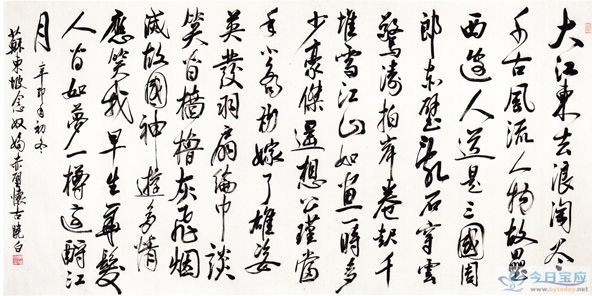 大江東去浪淘尽
千古風流人物故壘
西邊人道是三國周
郎赤壁乱石穿雲
驚濤拍岸卷起千
堆雪江山如畫一時多
少豪傑遥想公瑾當
年小喬初嫁了雄姿
英發羽扇綸巾談
笑間檣櫓灰飛烟
滅故國神遊多情
應笑我早生華髮
人間如夢一樽還酹江
月
辛卯年初冬
蘇東坡念奴嬌赤壁懷古曉白
今日宝应
www.bytoday.net